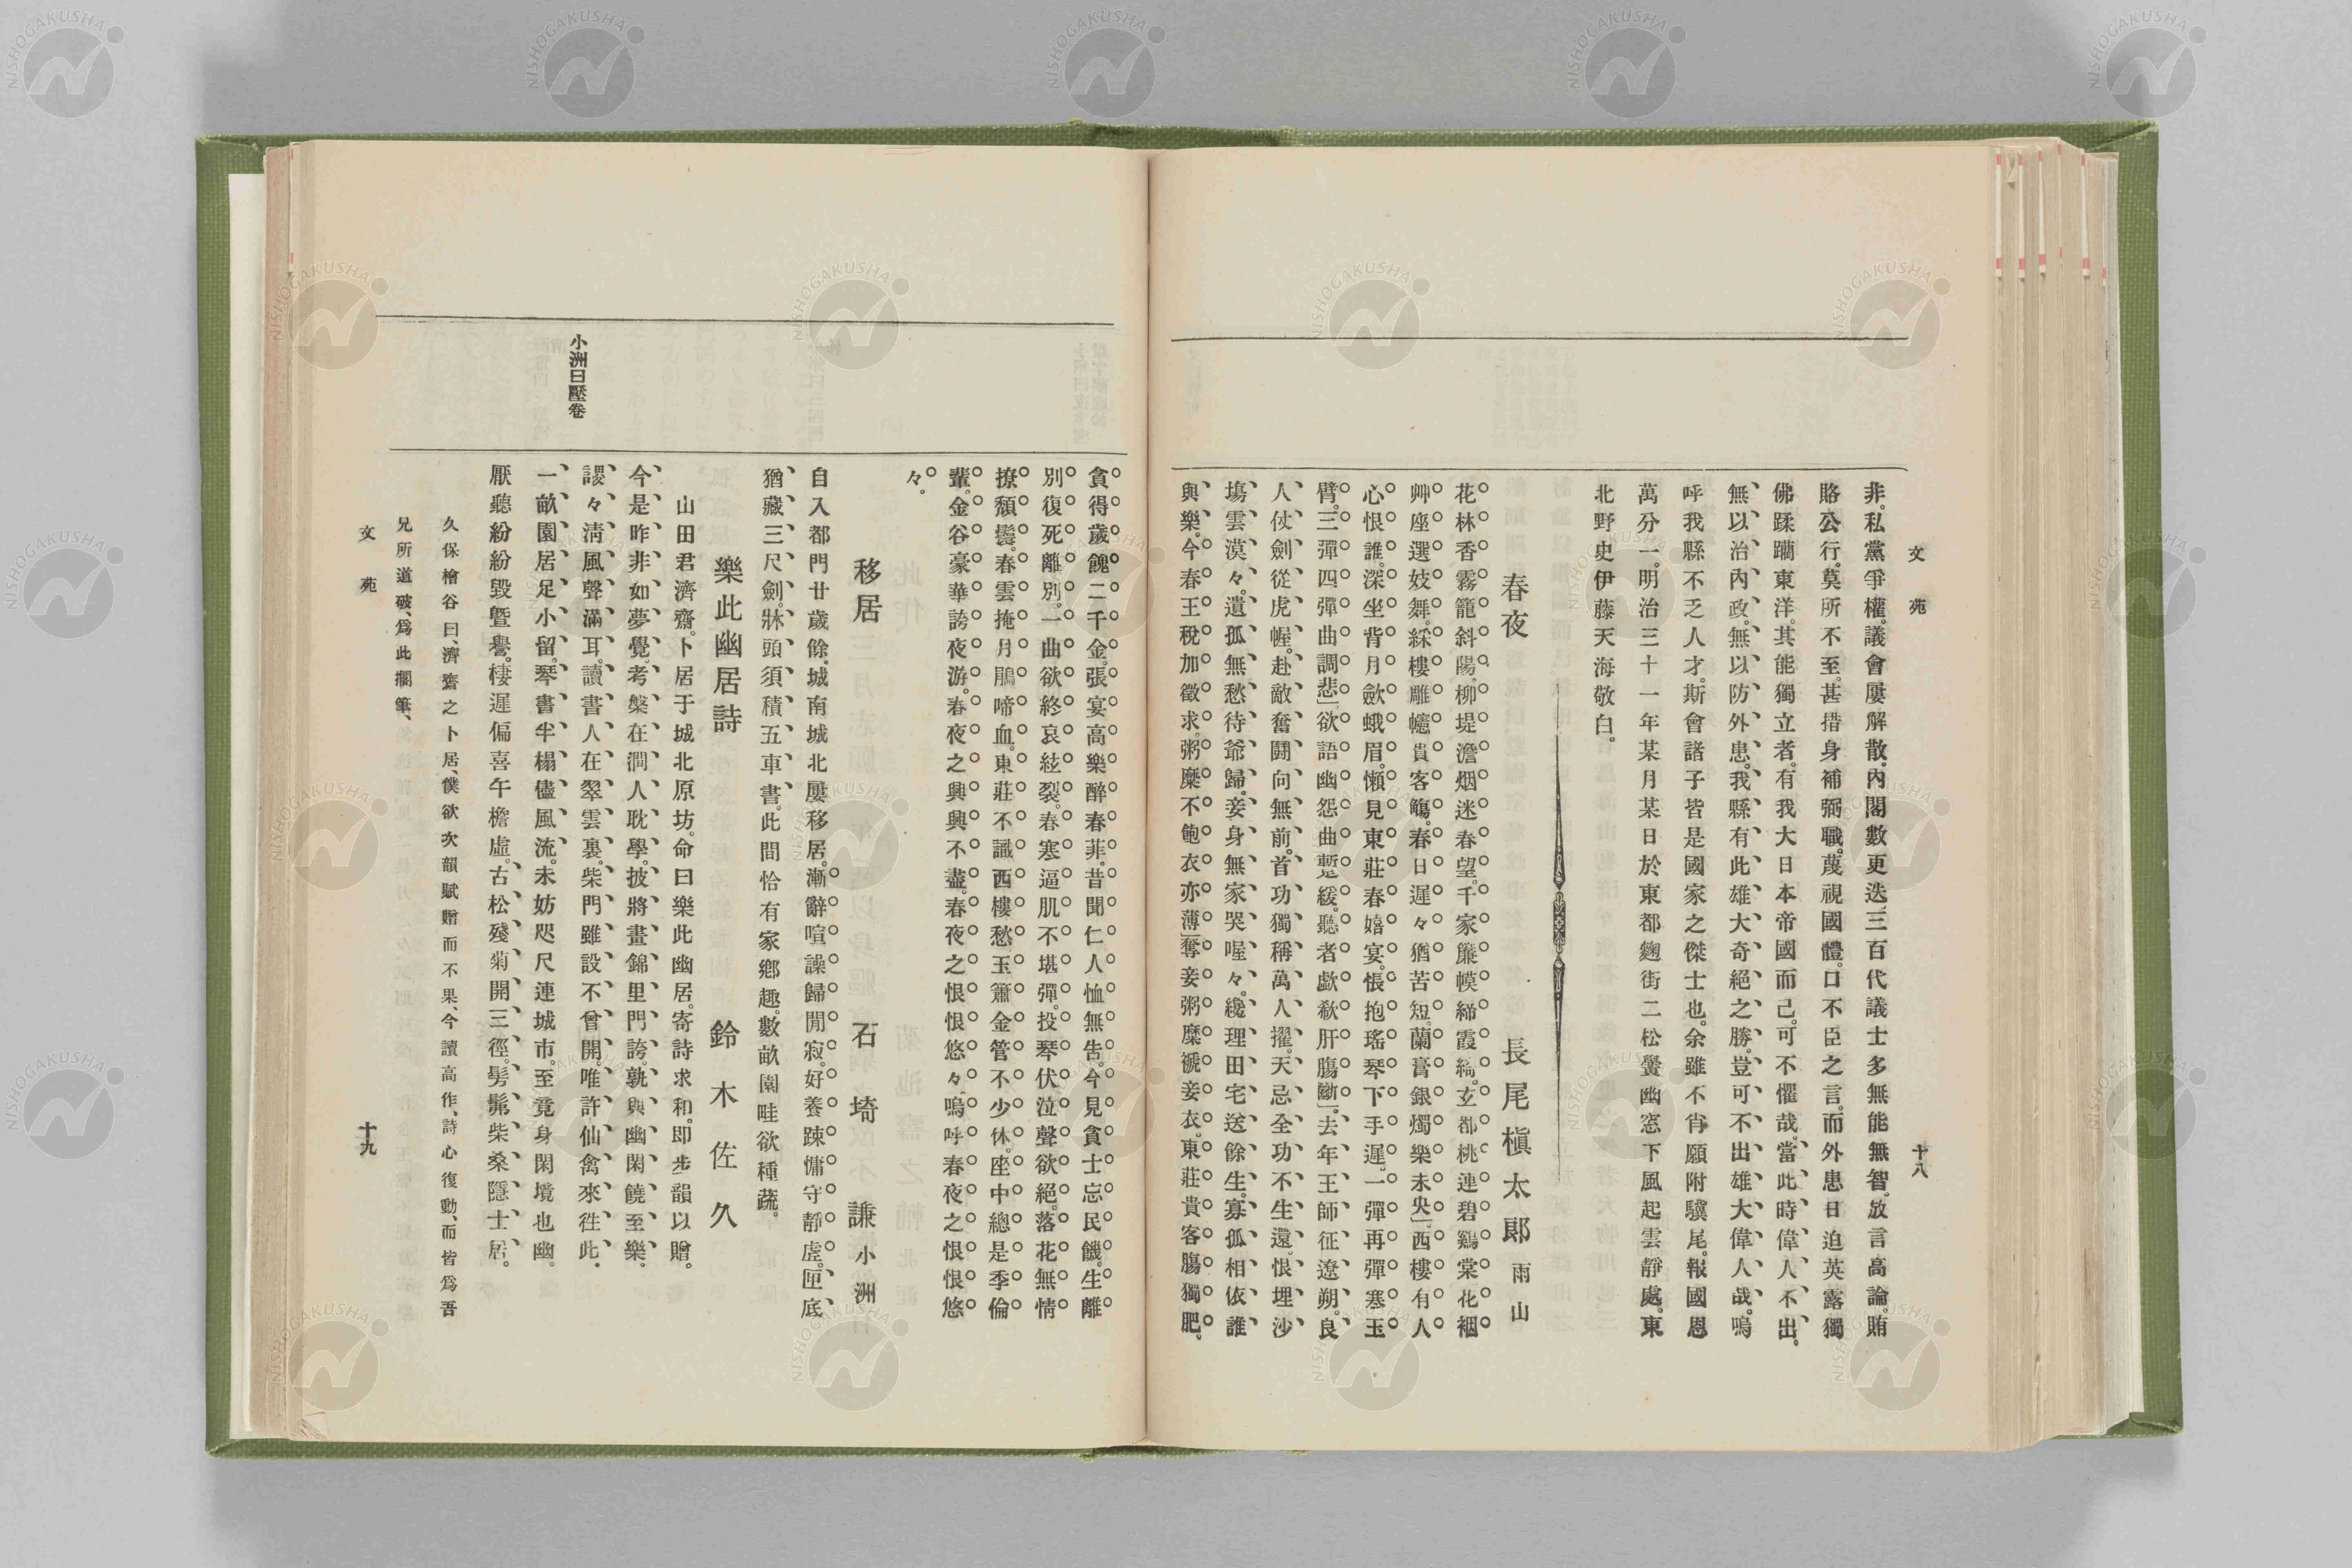 文苑
十八
非。私黨爭權。議會屢解散。內閣數更迭。三百代議士多無能無智。放言高論。賄
賂公行。莫所不至。甚措身補弼職。蔑視國體。口不臣之言。而外患日迫英露獨
佛蹂躪東洋。其能獨立者。有我大日本帝國而已。可不懼哉。當此時偉人不出。
無以治內政。無以防外患。我縣有此雄大奇絕之勝。豈可不出雄大偉人哉。嗚
呼我縣不乏人才。斯會諸子皆是國家之傑士也。余雖不肖願附驥尾。報國恩
萬分一。明治三十一年某月某日於東都麴街二松黌幽窓下風起雲靜處。東
北野史伊藤天海敬白。
春夜
長尾槇太郞雨山
花林香霧籠斜陽。柳堤澹烟迷春望。千家簾幙締霞綺。玄都桃連碧鷄棠花裀
艸座選妓舞。綵樓雕幰貴客觴。春日遲々猶苦短。蘭膏銀燭樂未央」。西樓有人
心恨誰。深坐背月斂蛾眉。懶見東莊春嬉宴。悵抱瑤琴下手遲。一彈再彈寒玉
臂。三彈四彈曲調悲」欲語幽怨曲蹔緩。聽者歔欷肝膓斷」。去年王師征遼朔。良
人仗劍從虎幄。赴敵奮鬪向無前。首功獨稱萬人擢。天忌全功不生還。恨埋沙
塲雲漠々。遺孤無愁待爺歸。妾身無家哭喔々。纔理田宅送餘生。寡孤相依誰
與樂。今春王稅加徵求。粥糜不飽衣亦薄」奪妾粥糜褫妾衣。東莊貴客膓獨肥。
貪得歲餽二千金。張宴高樂醉春菲。昔聞仁人恤無告。今見貪士忘民饑。生離
別復死離別。一曲欲終哀絃裂。春寒逼肌不堪彈。投琴伏泣聲欲絕。落花無情
撩頹鬟。春雲掩月鵑啼血。東莊不識西樓愁。玉簫金管不少休。座中總是季倫
輩。金谷豪華誇夜游。春夜之興興不盡。春夜之恨恨悠々。嗚呼春夜之恨恨悠
々。
移居
石埼謙小洲
自入都門廿歲餘。城南城北屢移居。漸辭喧譟歸閒寂。好養踈慵守靜虛。匣底
猶藏三尺劍。牀頭須積五車書。此間恰有家鄕趣。數畝園畦欲種蔬。
樂此幽居詩
鈴木佐久
山田君濟齋。卜居于城北原坊。命曰樂此幽居。寄詩求和。即步韻以贈。
今是昨非如夢覺。考槃在澗人耽學。披將晝錦里門誇。孰與幽閑饒至樂。
謖々淸風聲滿耳。讀書人在翠雲裏。柴門雖設不曾開。唯許仙禽來徃此。
小洲曰壓卷
一畝園居足小留。琴書半榻儘風流。未妨咫尺連城市。至竟身閑境也幽。
厭聽紛紛毀曁譽。棲遲偏喜午檐虛。古松殘菊開三徑。髣髴柴桑隱士居。
久保檜谷曰、濟齋之卜居、僕欲次韻賦贈而不果、今讀高作、詩心復動、而皆爲吾
兄所道破、爲此擱筆、
文苑
十九